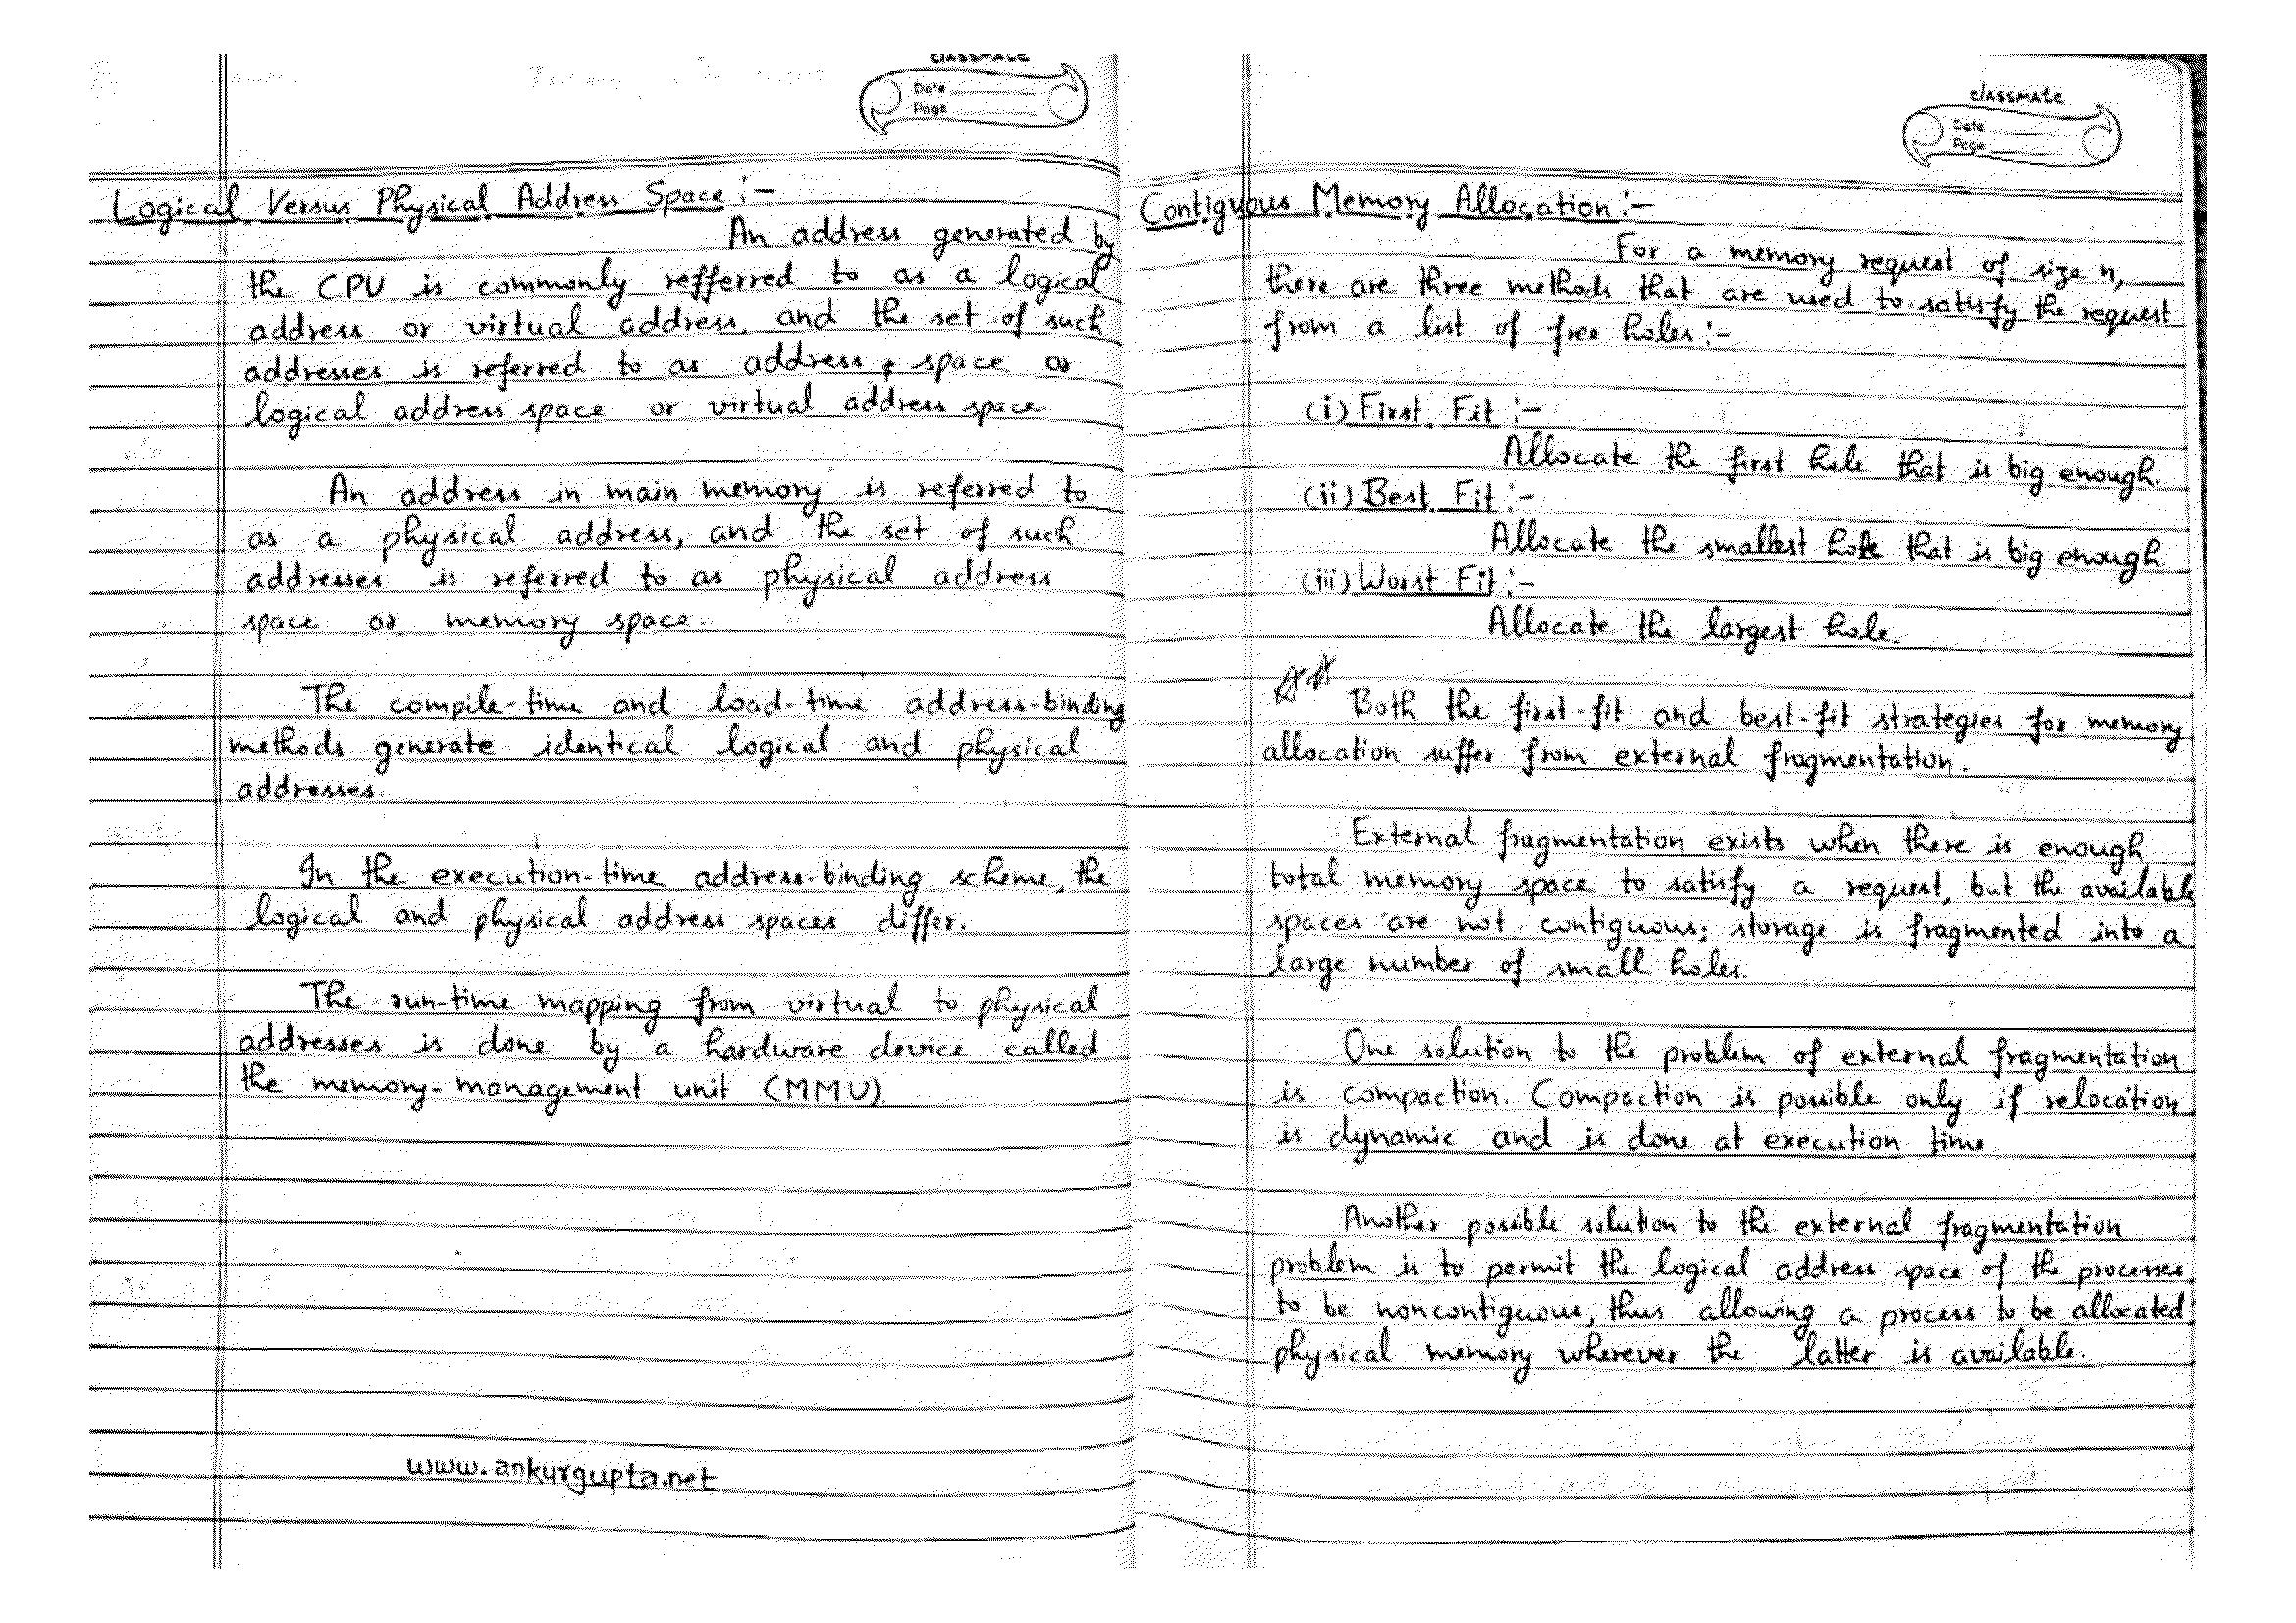 classmate
Date
Page
Logical Versus Physical Address Space :-
An address generated by
the CPU is commonly refferred to as a logical
address or virtual address, and the set of such
addresses is referred to as address space or
logical address space or virtual address space.
An address in main memory is referred to
as a physical address, and the set of such
addresses is referred to as physical address
space or memory space.
The compile-time and load-time address-binding
methods generate identical logical and physical
addresses.
In the execution-time address-binding scheme, the
logical and physical address spaces differ.
The run-time mapping from virtual to physical
addresses is done by a hardware device called
the memory-management unit (MMU).
www.ankurgupta.net
classmate
Date
Page
Contiguous Memory Allocation :-
For a memory request of size n,
there are three methods that are used to satisfy the request
from a list of free holes :-
(i) First Fit :-
Allocate the first hole that is big enough.
(ii) Best Fit :-
Allocate the smallest hole that is big enough.
(iii) Worst Fit :-
Allocate the largest hole.
Both the first-fit and best-fit strategies for memory
allocation suffer from external fragmentation.
External fragmentation exists when there is enough
total memory space to satisfy a request, but the available
spaces are not contiguous; storage is fragmented into a
large number of small holes.
One solution to the problem of external fragmentation
is compaction. Compaction is possible only if relocation
is dynamic and is done at execution time.
Another possible solution to the external fragmentation
problem is to permit the logical address space of the processes
to be noncontiguous, thus allowing a process to be allocated
physical memory wherever the latter is available.